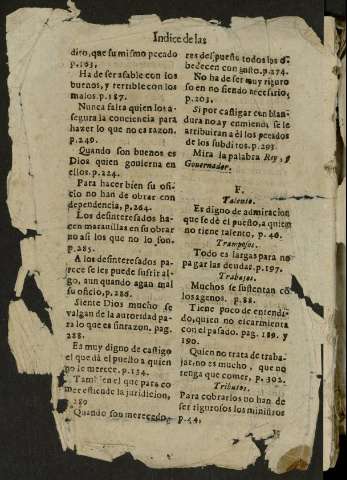 Indice de las
dito, que su mismo pecado
p.163.
Ha de ser afable con los
buenos, y terrible con los
malos. p.187.
Nunca falta quien los a-
segura la conciencia para
hazer lo que no es razon.
p.240.
Quando son buenos es
Dios quien gouierna en
ellos. p.224.
Para hacer bien su ofi-
cio no han de obrar con
dependencia, p.264.
Los desinteresados ha-
cen marauillas en su obrar
no asi los que no lo son.
p.285.
A los desinteresados pa-
rece se les puede sufrir al-
go, aun quando agan mal
su oficio, p.286.
Siente Dios mucho se
valgan de la autoridad pa-
ra lo que es sinrazon. pag.
288.
Es muy digno de castigo
el que dà el puesto a quien
no le merece. p.134.
Tambien el que para co
mer estiende la juridicion,
289
Quando son merecedo-
res del puesto todos los o-
bedecen con gusto. p.274.
No ha de ser muy riguro
so en no siendo necesario,
p.203.
Si por castigar con blan-
dura no ay enmienda, se le
atribuiran a èl los pecados
de los subditos. p.293
Mira la palabra Rey, y
Gouernador.
F.
Talento.
Es digno de admiracion
que se dè el puesto, a quien
no tiene talento, p. 46.
Tramposos.
Todo es largas para no
pagar las deudas. p.197.
Trabajos.
Muchos se sustentan cõ
los agenos. p. 88.
Tiene poco de entendi-
do, quien no escarmienta
con el pasado. pag. 189. y
190.
Quien no trata de traba-
jar, no es mucho, que no
tenga que comer, p. 302.
Tributos.
Para cobrarlos no han de
ser rigurosos los ministros
p.44.